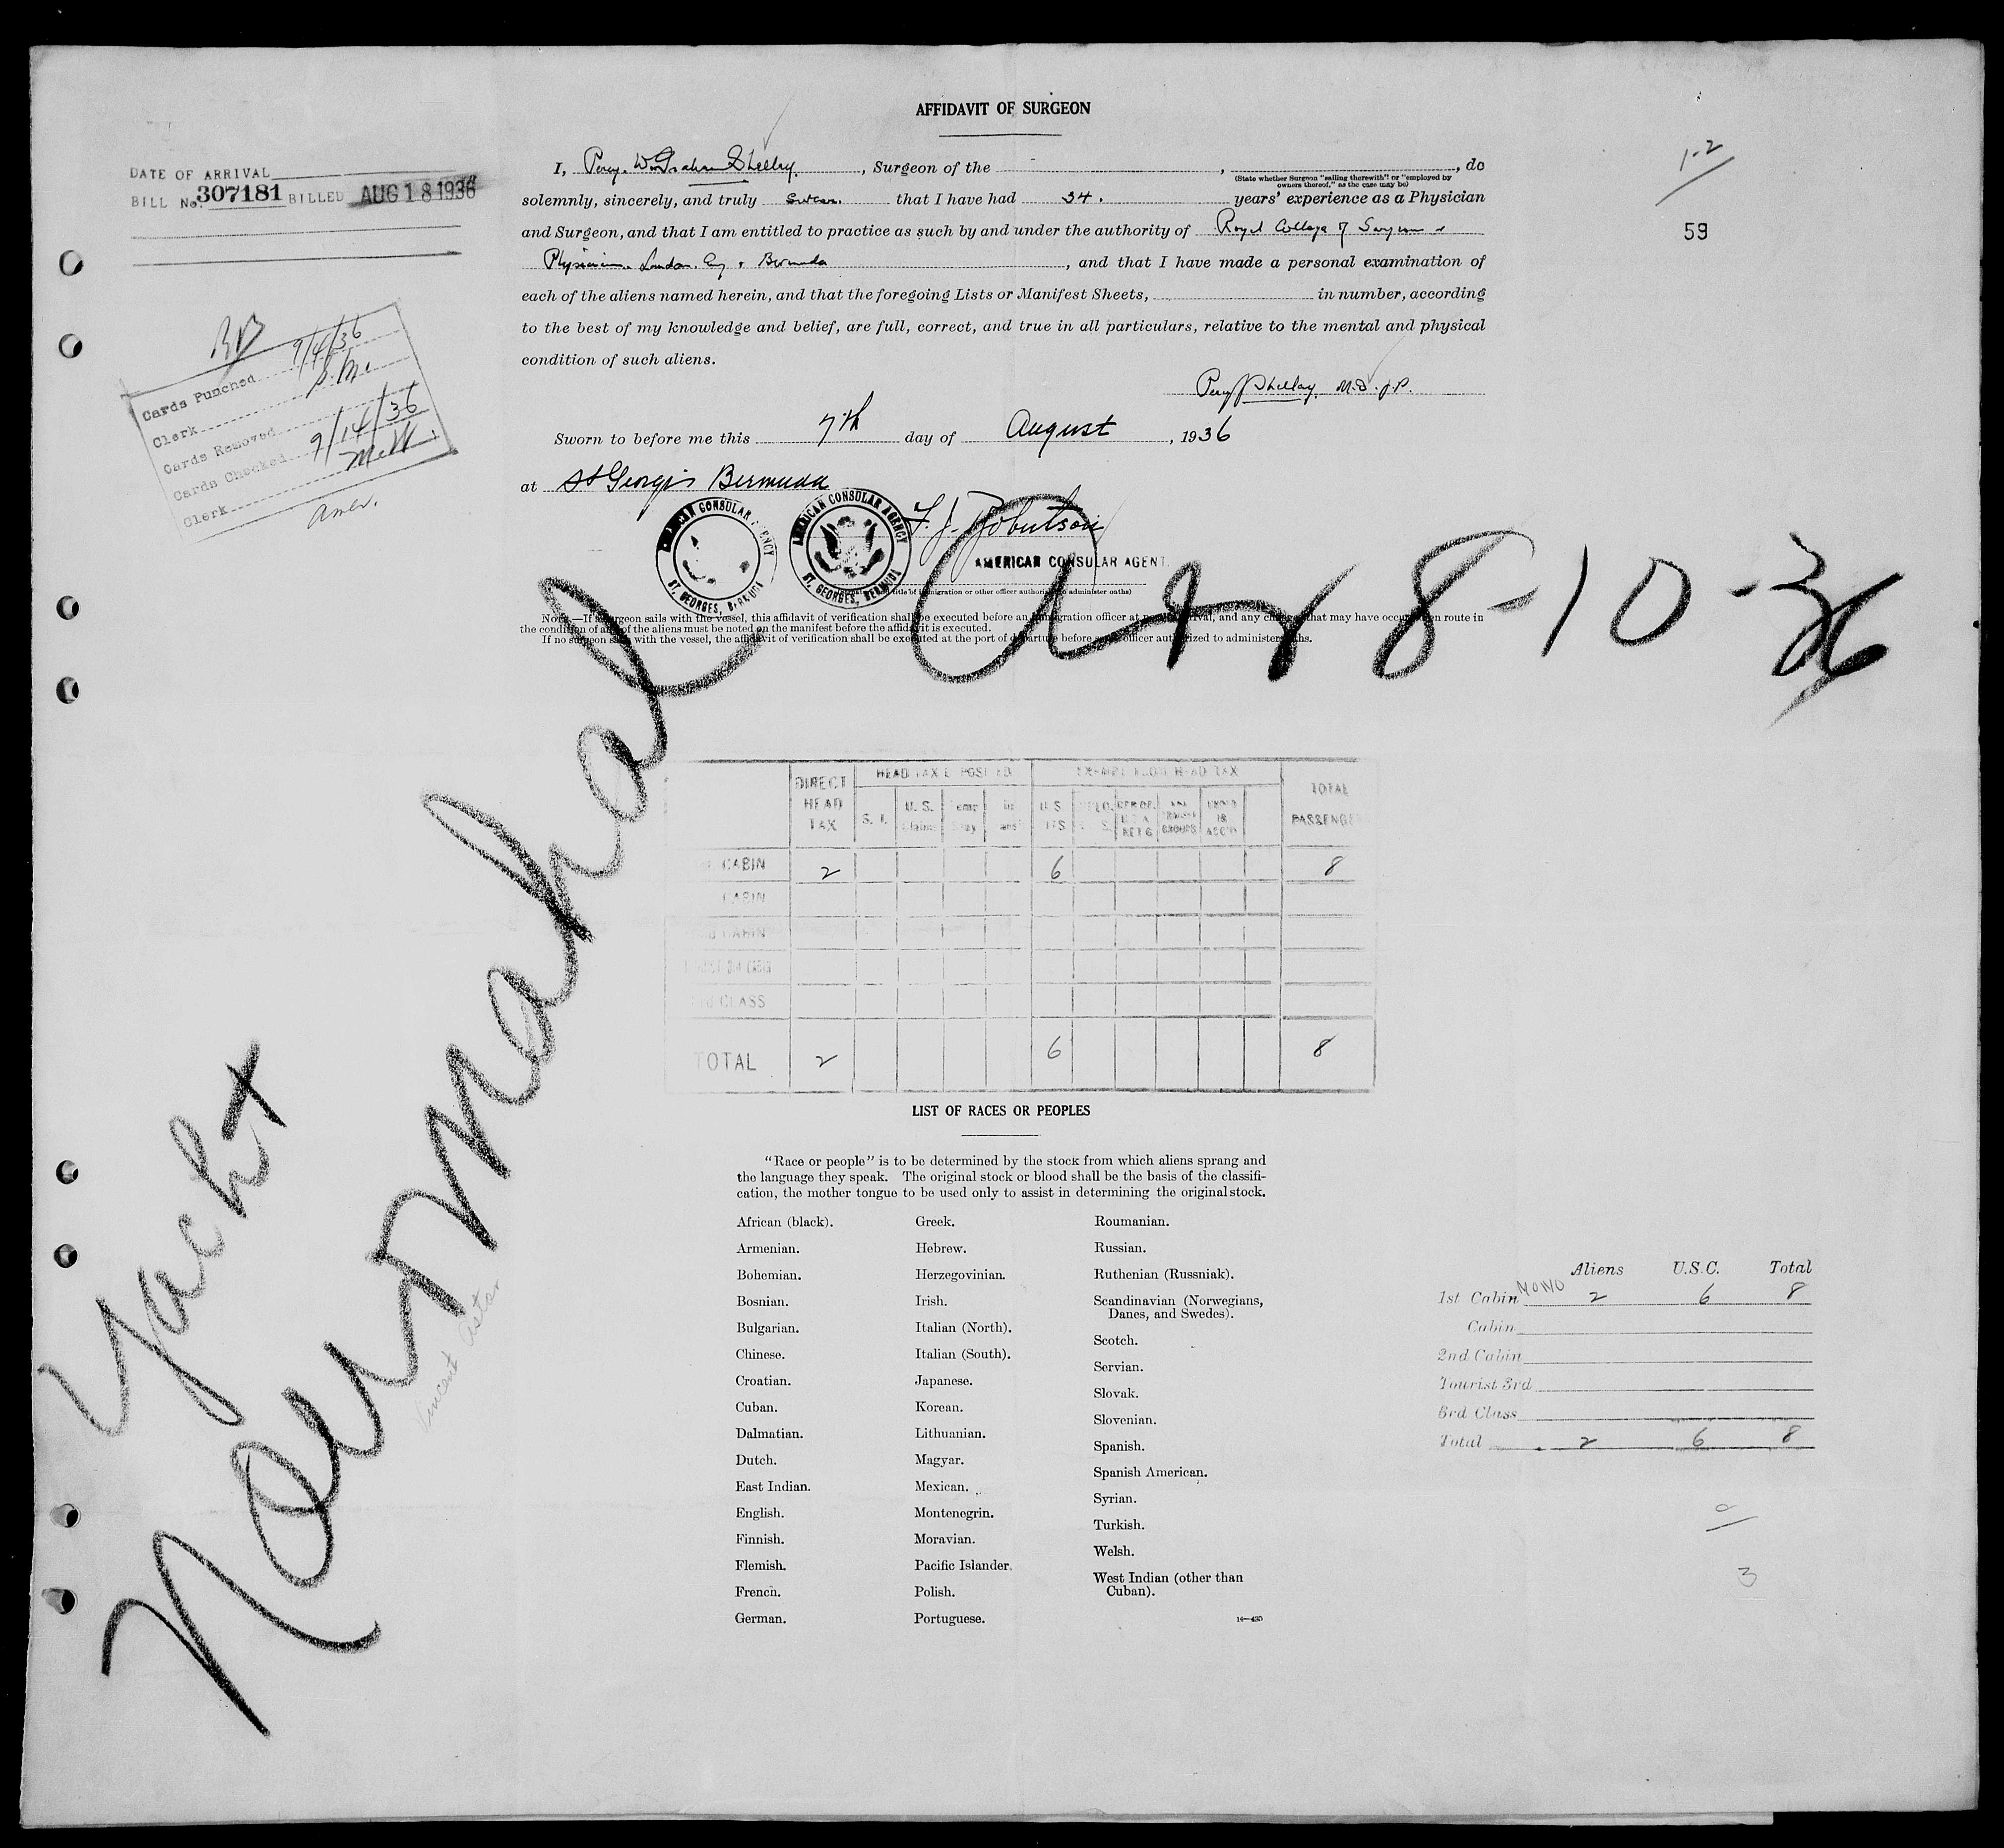 AFFIDAVIT OF SURGEON
I, Percy. Wm Graham Shelley. , Surgeon of the , , do
(State whether Surgeon "sailing therewith" or "employed by
owners thereof," as the case may be)
solemnly, sincerely, and truly swear. that I have had 34. years' experience as a Physician
and Surgeon, and that I am entitled to practice as such by and under the authority of Royal College of Surgeons &
Physicians. London. Eng & Bermuda , and that I have made a personal examination of
each of the aliens named herein, and that the foregoing Lists or Manifest Sheets, in number, according
to the best of my knowledge and belief, are full, correct, and true in all particulars, relative to the mental and physical
condition of such aliens.
Shelley, M.D. J.P.
Sworn to before me this 7th day of August , 1936
at St Georges Bermuda
AMERICAN CONSULAR AGENCY
ST. GEORGES, BERMUDA
AMERICAN CONSULAR AGENCY
ST. GEORGES, BERMUDA
F. J. Robertson
AMERICAN CONSULAR AGENT.
(title of immigration or other officer authorized to administer oaths)
NOTE.—If a surgeon sails with the vessel, this affidavit of verification shall be executed before an immigration officer at port of arrival, and any changes that may have occurred en route in
the condition of any of the aliens must be noted on the manifest before the affidavit is executed.
If no surgeon sails with the vessel, the affidavit of verification shall be executed at the port of departure before any officer authorized to administer oaths.
DATE OF ARRIVAL
BILL No. 307181 BILLED AUG 18 1936
1-2
59
Cards Punched 9/4/36
Clerk
Cards Removed
Cards Checked 9/14/36
Clerk
Arr 8-10-36
Yacht
Nourmahal
Vincent Astor
DIRECT HEAD TAX
HEAD TAX DEPOSITED
EXEMPT FROM HEAD TAX
TOTAL PASSENGERS
S. I. U. S. Claims Temp Stay
CABIN 2 6 8
CABIN
CABIN
CLASS
TOTAL 2 6 8
LIST OF RACES OR PEOPLES
"Race or people" is to be determined by the stock from which aliens sprang and
the language they speak. The original stock or blood shall be the basis of the classifi-
cation, the mother tongue to be used only to assist in determining the original stock.
African (black).
Armenian.
Bohemian.
Bosnian.
Bulgarian.
Chinese.
Croatian.
Cuban.
Dalmatian.
Dutch.
East Indian.
English.
Finnish.
Flemish.
French.
German.
Greek.
Hebrew.
Herzegovinian.
Irish.
Italian (North).
Italian (South).
Japanese.
Korean.
Lithuanian.
Magyar.
Mexican.
Montenegrin.
Moravian.
Pacific Islander.
Polish.
Portuguese.
Roumanian.
Russian.
Ruthenian (Russniak).
Scandinavian (Norwegians,
Danes, and Swedes).
Scotch.
Servian.
Slovak.
Slovenian.
Spanish.
Spanish American.
Syrian.
Turkish.
Welsh.
West Indian (other than
Cuban).
Aliens U.S.C. Total
1st Cabin 2 6 8
Cabin
2nd Cabin
Tourist 3rd
3rd Class
Total 2 6 8
3